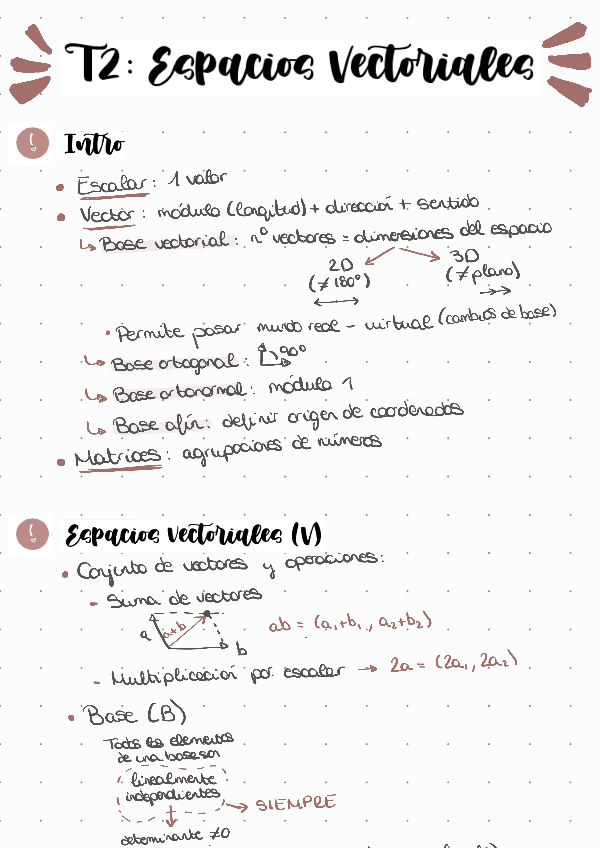 T2: Espacios Vectoriales
! Intro
• Escalar: 1 valor
• Vector: módulo (longitud) + dirección + sentido
↳ Base vectorial: nº vectores = dimensiones del espacio
2D 3D
(≠ 180º) (≠ plano)
• Permite pasar mundo real - virtual (cambios de base)
↳ Base ortogonal: 90º
↳ Base ortonormal: módulo 1
↳ Base afín: definir origen de coordenadas
• Matrices: agrupaciones de números
! Espacios vectoriales (V)
• Conjunto de vectores y operaciones:
- Suma de vectores
a a+b b ab = (a₁+b₁, a₂+b₂)
- Multiplicación por escalar → 2a = (2a₁, 2a₂)
• Base (B)
Todos los elementos
de una base son
linealmente
independientes → SIEMPRE
determinante ≠0